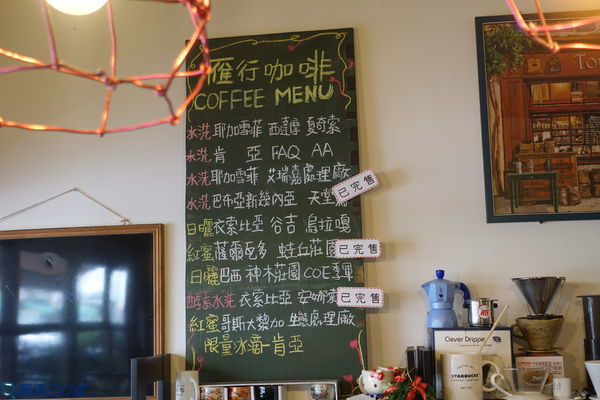 雁行咖啡
COFFEE MENU
水洗 耶加雪菲 西達摩 夏奇索
水洗 肯亞 FAQ AA
水洗 耶加雪菲 艾瑞嘉處理廠
水洗 巴布亞新幾內亞 天堂鳥
已完售
日曬 衣索比亞 谷吉 烏拉嘎
紅蜜 薩爾瓦多 蛙丘莊園
已完售
日曬 巴西 神木莊園 COE季軍
酵素水洗 衣索比亞 安娜索
已完售
紅蜜 哥斯大黎加 生態處理廠
限量冰滴-肯亞
Clever Dripper
STARBUCKS
To